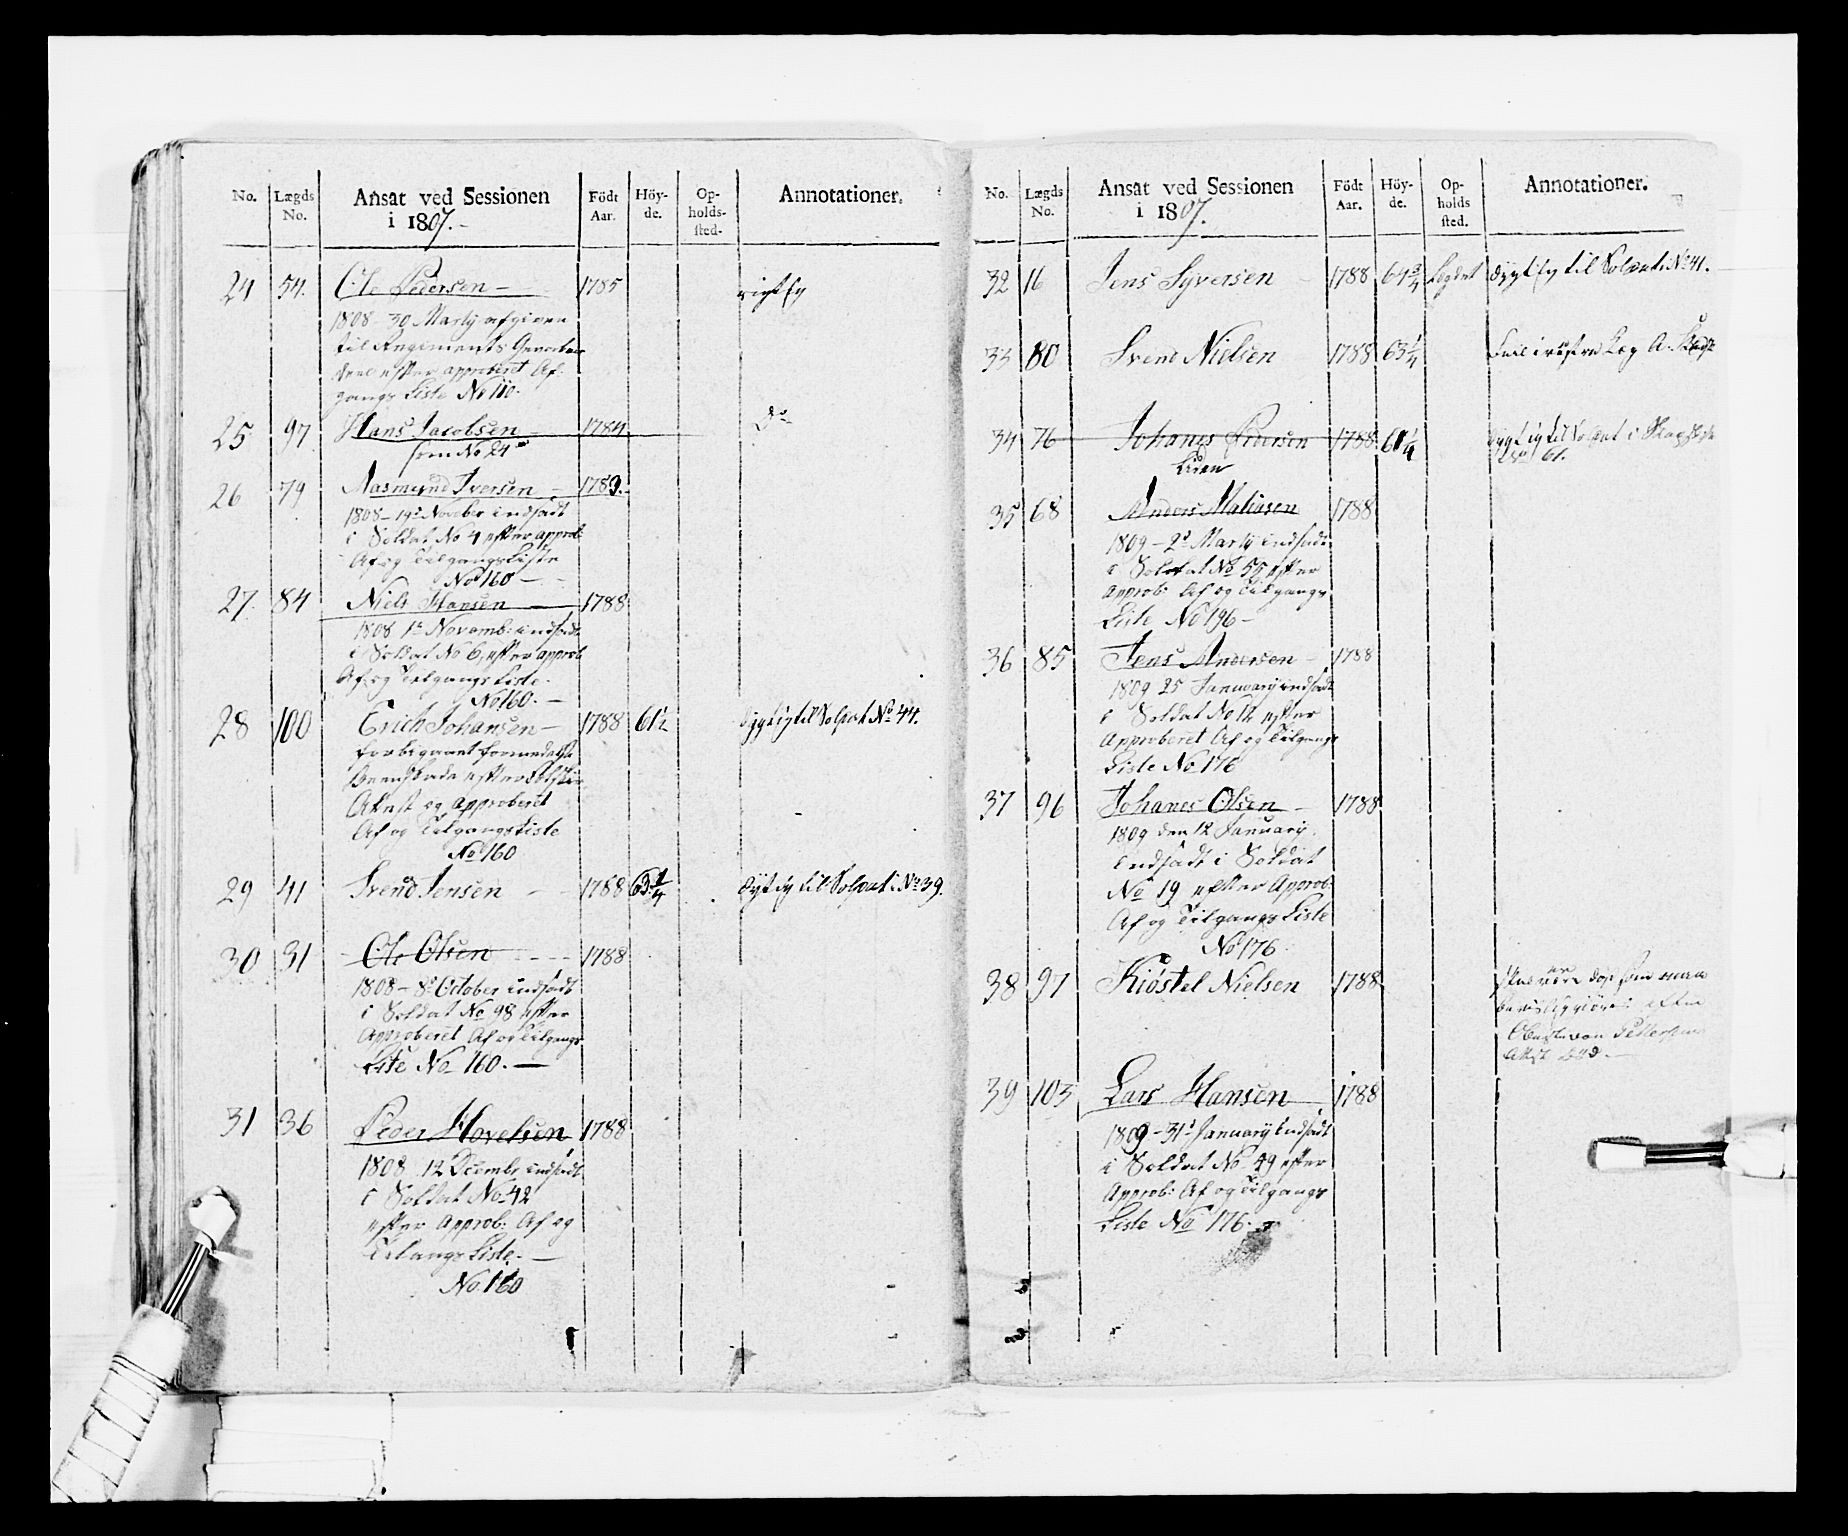 No. Lægds No. Ansat ved Sessionen i 1807. Född Aar. Höy-de. Op-holds-sted. Annotationer.
24 54. Ole Pedersen 1785 rigtig
1808 30 Marty afgiven
til Regiments
efter approberet Af-
gangs Liste No 110.
25 97 Hans Jacobsen 1784 Do
som No 24
26 79 Aasmund Iversen 1789.
1808 - 19de November indsadt
i Soldat No 4 efter approb:
Af og Tilgangs Liste
No 160
27. 84 Niels Hansen 1788
1808 1e Novemb: indsadt
i Soldat No 6, efter approb
Af og Tilgangs Liste.
No 160.
28 100 Erich Johansen 1788 61½ dygtig til Soldat No 44.
forbigaaet formedelst
Beenskade efter
Attest og Approberet
Af og Tilgangs Liste
No 160
29 41 Svend Jensen 1788 63¼ dygtig til Soldat i No 39.
30 31 Ole Olsen 1788
1808 - 8de October indsadt
i Soldat No 98 efter
Approberet Af og Tilgangs
Liste No 160.
31 36 Peder Hovelsen 1788
1808 12 Decembr indsadt
i Soldat No 42
efter Approb: Af og
Tilgangs Liste.
No 160
No. Lægds No. Ansat ved Sessionen i 1807. Födt Aar. Höy-de. Op-holds sted. Annotationer.
32 16 Jens Syversen 1788 64¾ Legdet dygtig til Soldat i No 41.
33 80 Svend Nielsen 1788 63¼
34 76 Johanes Pedersen 1788 61¼ dygtig til Soldat i
Lien No 61.
35 68 Anders Matiasen 1788
1809 - 2de Marty indsadt
i Soldat No 55 efter
Approb: Af og Tilgangs
Liste No 196
36 85 Jens Andersen 1788
1809 25 January indsadt
i Soldat No 12 efter
Approberet Af og Tilgangs
Liste No 176
37 96 Johanes Olsen 1788
1809 den 12 January
indsadt i Soldat
No 19 efter Approb:
Af og Tilgangs Liste
No 176
38 97 Kiöstel Nielsen 1788 skal være död som
efter
Attest död
39 103 Lars Hansen 1788
1809 - 31te January indsadt
i Soldat No 49 efter
Approb: Af og Tilgangs
Liste No 176.